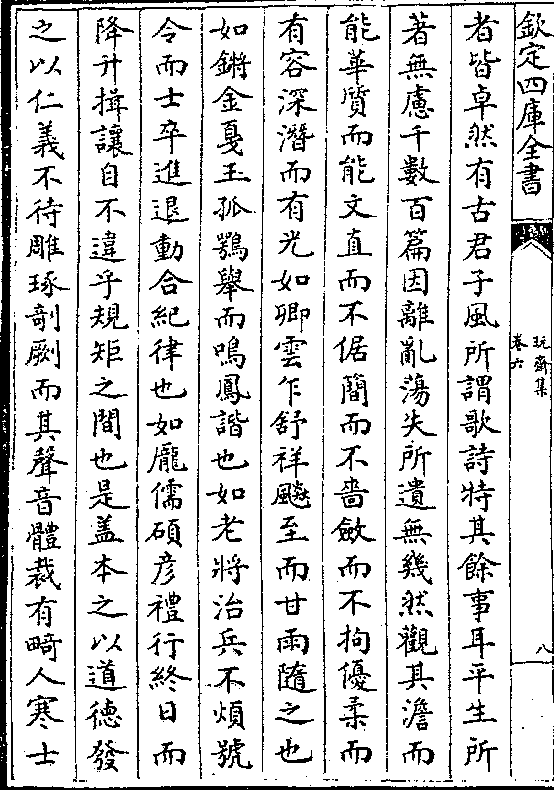 欽定四庫全書
玩齋集
卷六
八
者皆卓然有古君子風所謂歌詩特其餘事耳平生所
著無慮千數百篇因離亂蕩失所遺無幾然觀其澹而
能華質而能文直而不倨簡而不嗇斂而不拘優柔而
有容深潛而有光如卿雲乍舒祥飈至而甘雨隨之也
如鏘金戛玉孤鶚舉而鳴鳳諧也如老將治兵不煩號
令而士卒進退動合紀律也如龐儒碩彦禮行終日而
降升揖讓自不違乎規矩之間也是盖本之以道德發
之以仁義不待雕琢剞劂而其聲音體裁有畸人寒士